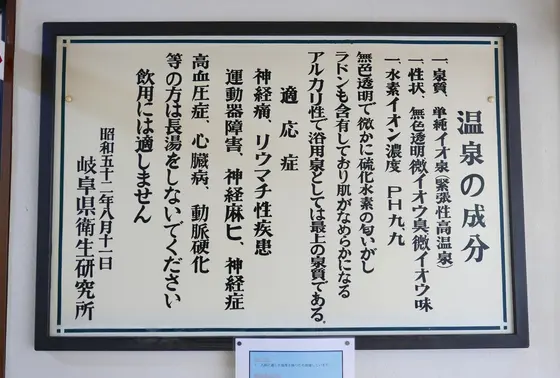 温泉の成分
一、泉質、単純イオ泉(緊張性高温泉)
一、性状、無色透明微イオウ臭、微イオウ味
一、水素イオン濃度 PH九、九
無色透明で微かに硫化水素の匂いがし
ラドンも含有しており肌がなめらかになる
アルカリ性で浴用泉としては最上の泉質である.
適応症
神経痛、リウマチ性疾患
運動器障害、神経麻ヒ、神経症
高血圧症、心臓病、動脈硬化
等の方は長湯をしないでください
飲用には適しません
昭和五十二年八月十一日
岐阜県衛生研究所